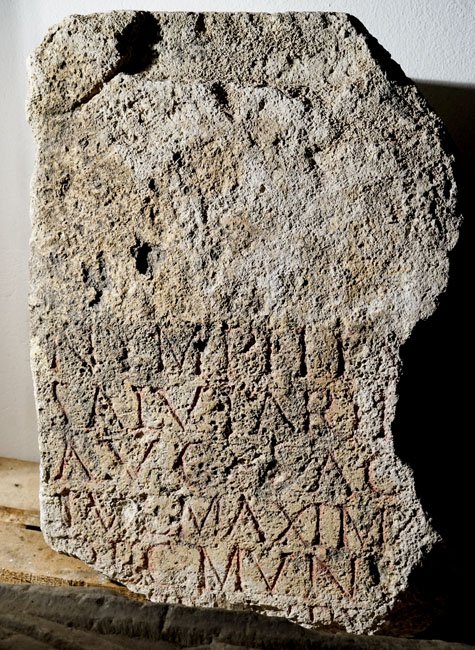 NYMPHI
SALVTARI
AVG SAC
IVL MAXIM
DEC MVN